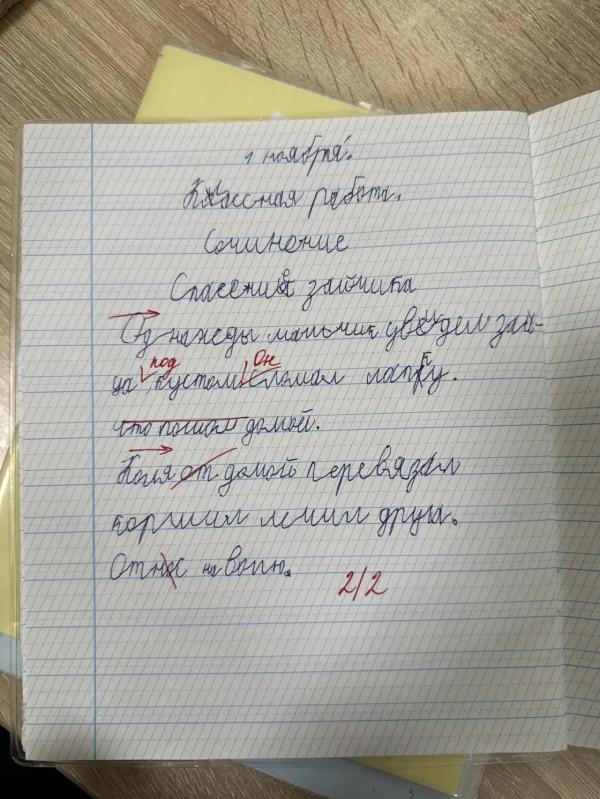 1 ноября.
Классная работа.
Сочинение
Спасение зайчика
Однажды мальчик увидел зай-
ца под кустом Он сломал лапку.
что пошол домой.
Коля от домой перевязал
кормил лечил друга.
Относ на волю.
2/2